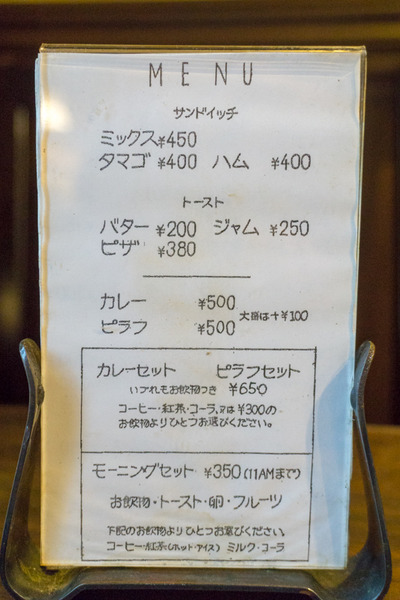 MENU
サンドイッチ
ミックス¥450
タマゴ ¥400 ハム ¥400
トースト
バター ¥200 ジャム ¥250
ピザ ¥380
カレー ¥500
大盛は+¥100
ピラフ ¥500
カレーセット ピラフセット
いづれもお飲物つき ¥650
コーヒー・紅茶・コーラ、又は¥300の
お飲物よりひとつお選びください。
モーニングセット ¥350(11AMまで)
お飲物・トースト・卵・フルーツ
下記のお飲物よりひとつお選びください。
コーヒー・紅茶(ホット・アイス) ミルク・コーラ